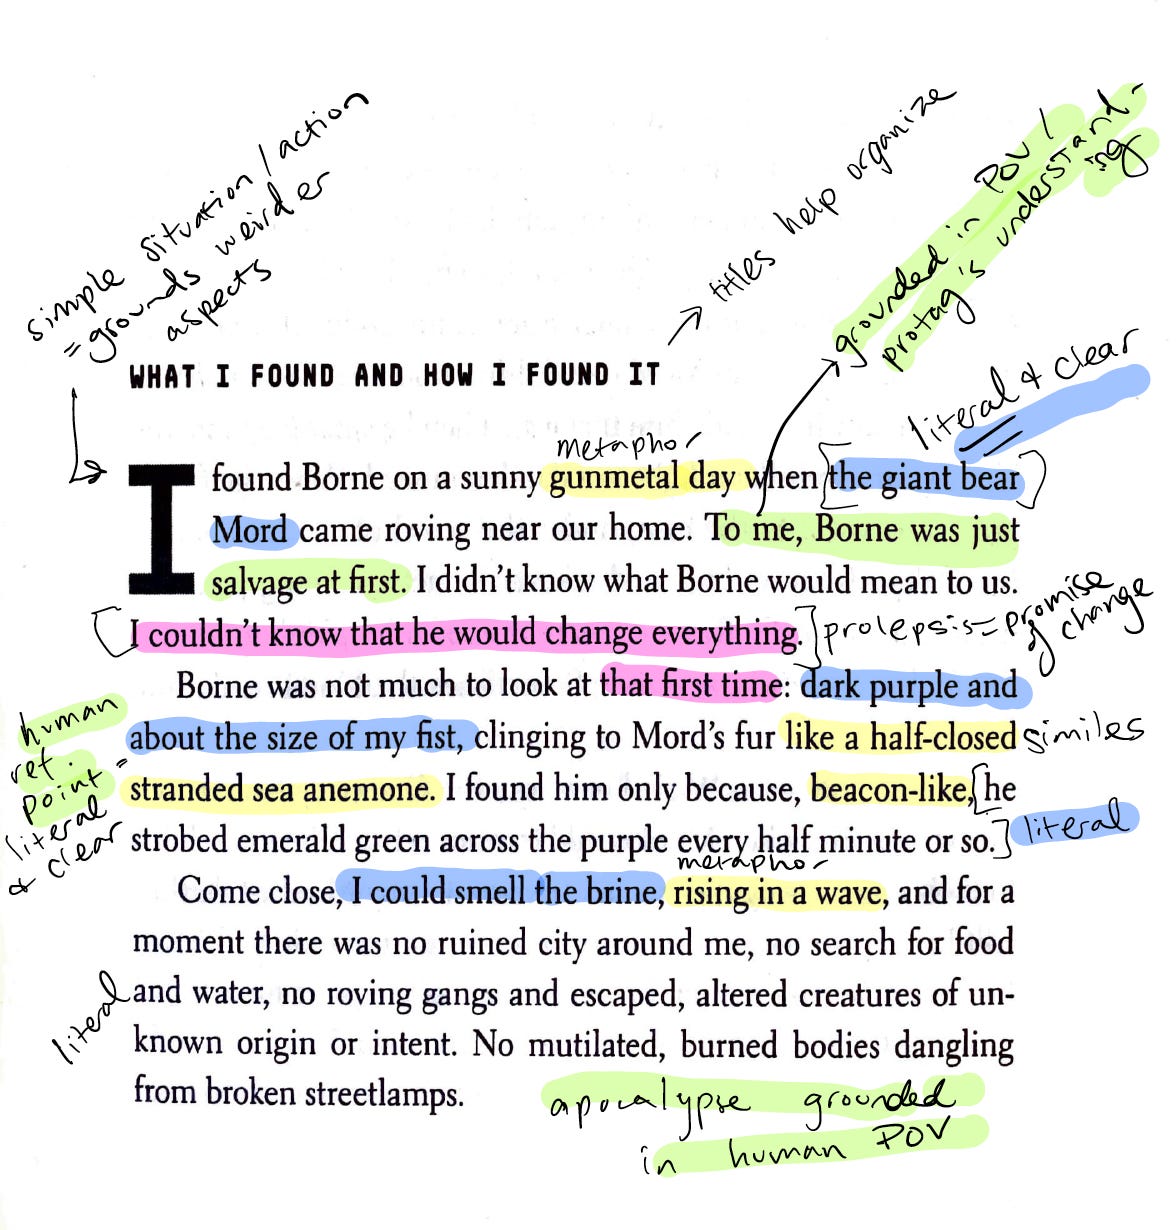 simple situation / action
= grounds weirder
aspects
→ titles help organize
grounded in POV /
protag's understand-
ing
WHAT I FOUND AND HOW I FOUND IT
literal & clear
metaphor
I found Borne on a sunny gunmetal day when [the giant bear
Mord] came roving near our home. To me, Borne was just
salvage at first. I didn't know what Borne would mean to us.
[I couldn't know that he would change everything.] prolepsis = promise
of change
Borne was not much to look at that first time: dark purple and
human
ref.
point =
literal
& clear
about the size of my fist, clinging to Mord's fur like a half-closed similes
stranded sea anemone. I found him only because, beacon-like, [he
strobed emerald green across the purple every half minute or so.] literal
metaphor
Come close, I could smell the brine, rising in a wave, and for a
moment there was no ruined city around me, no search for food
literal
and water, no roving gangs and escaped, altered creatures of un-
known origin or intent. No mutilated, burned bodies dangling
from broken streetlamps.
apocalypse grounded
in human POV